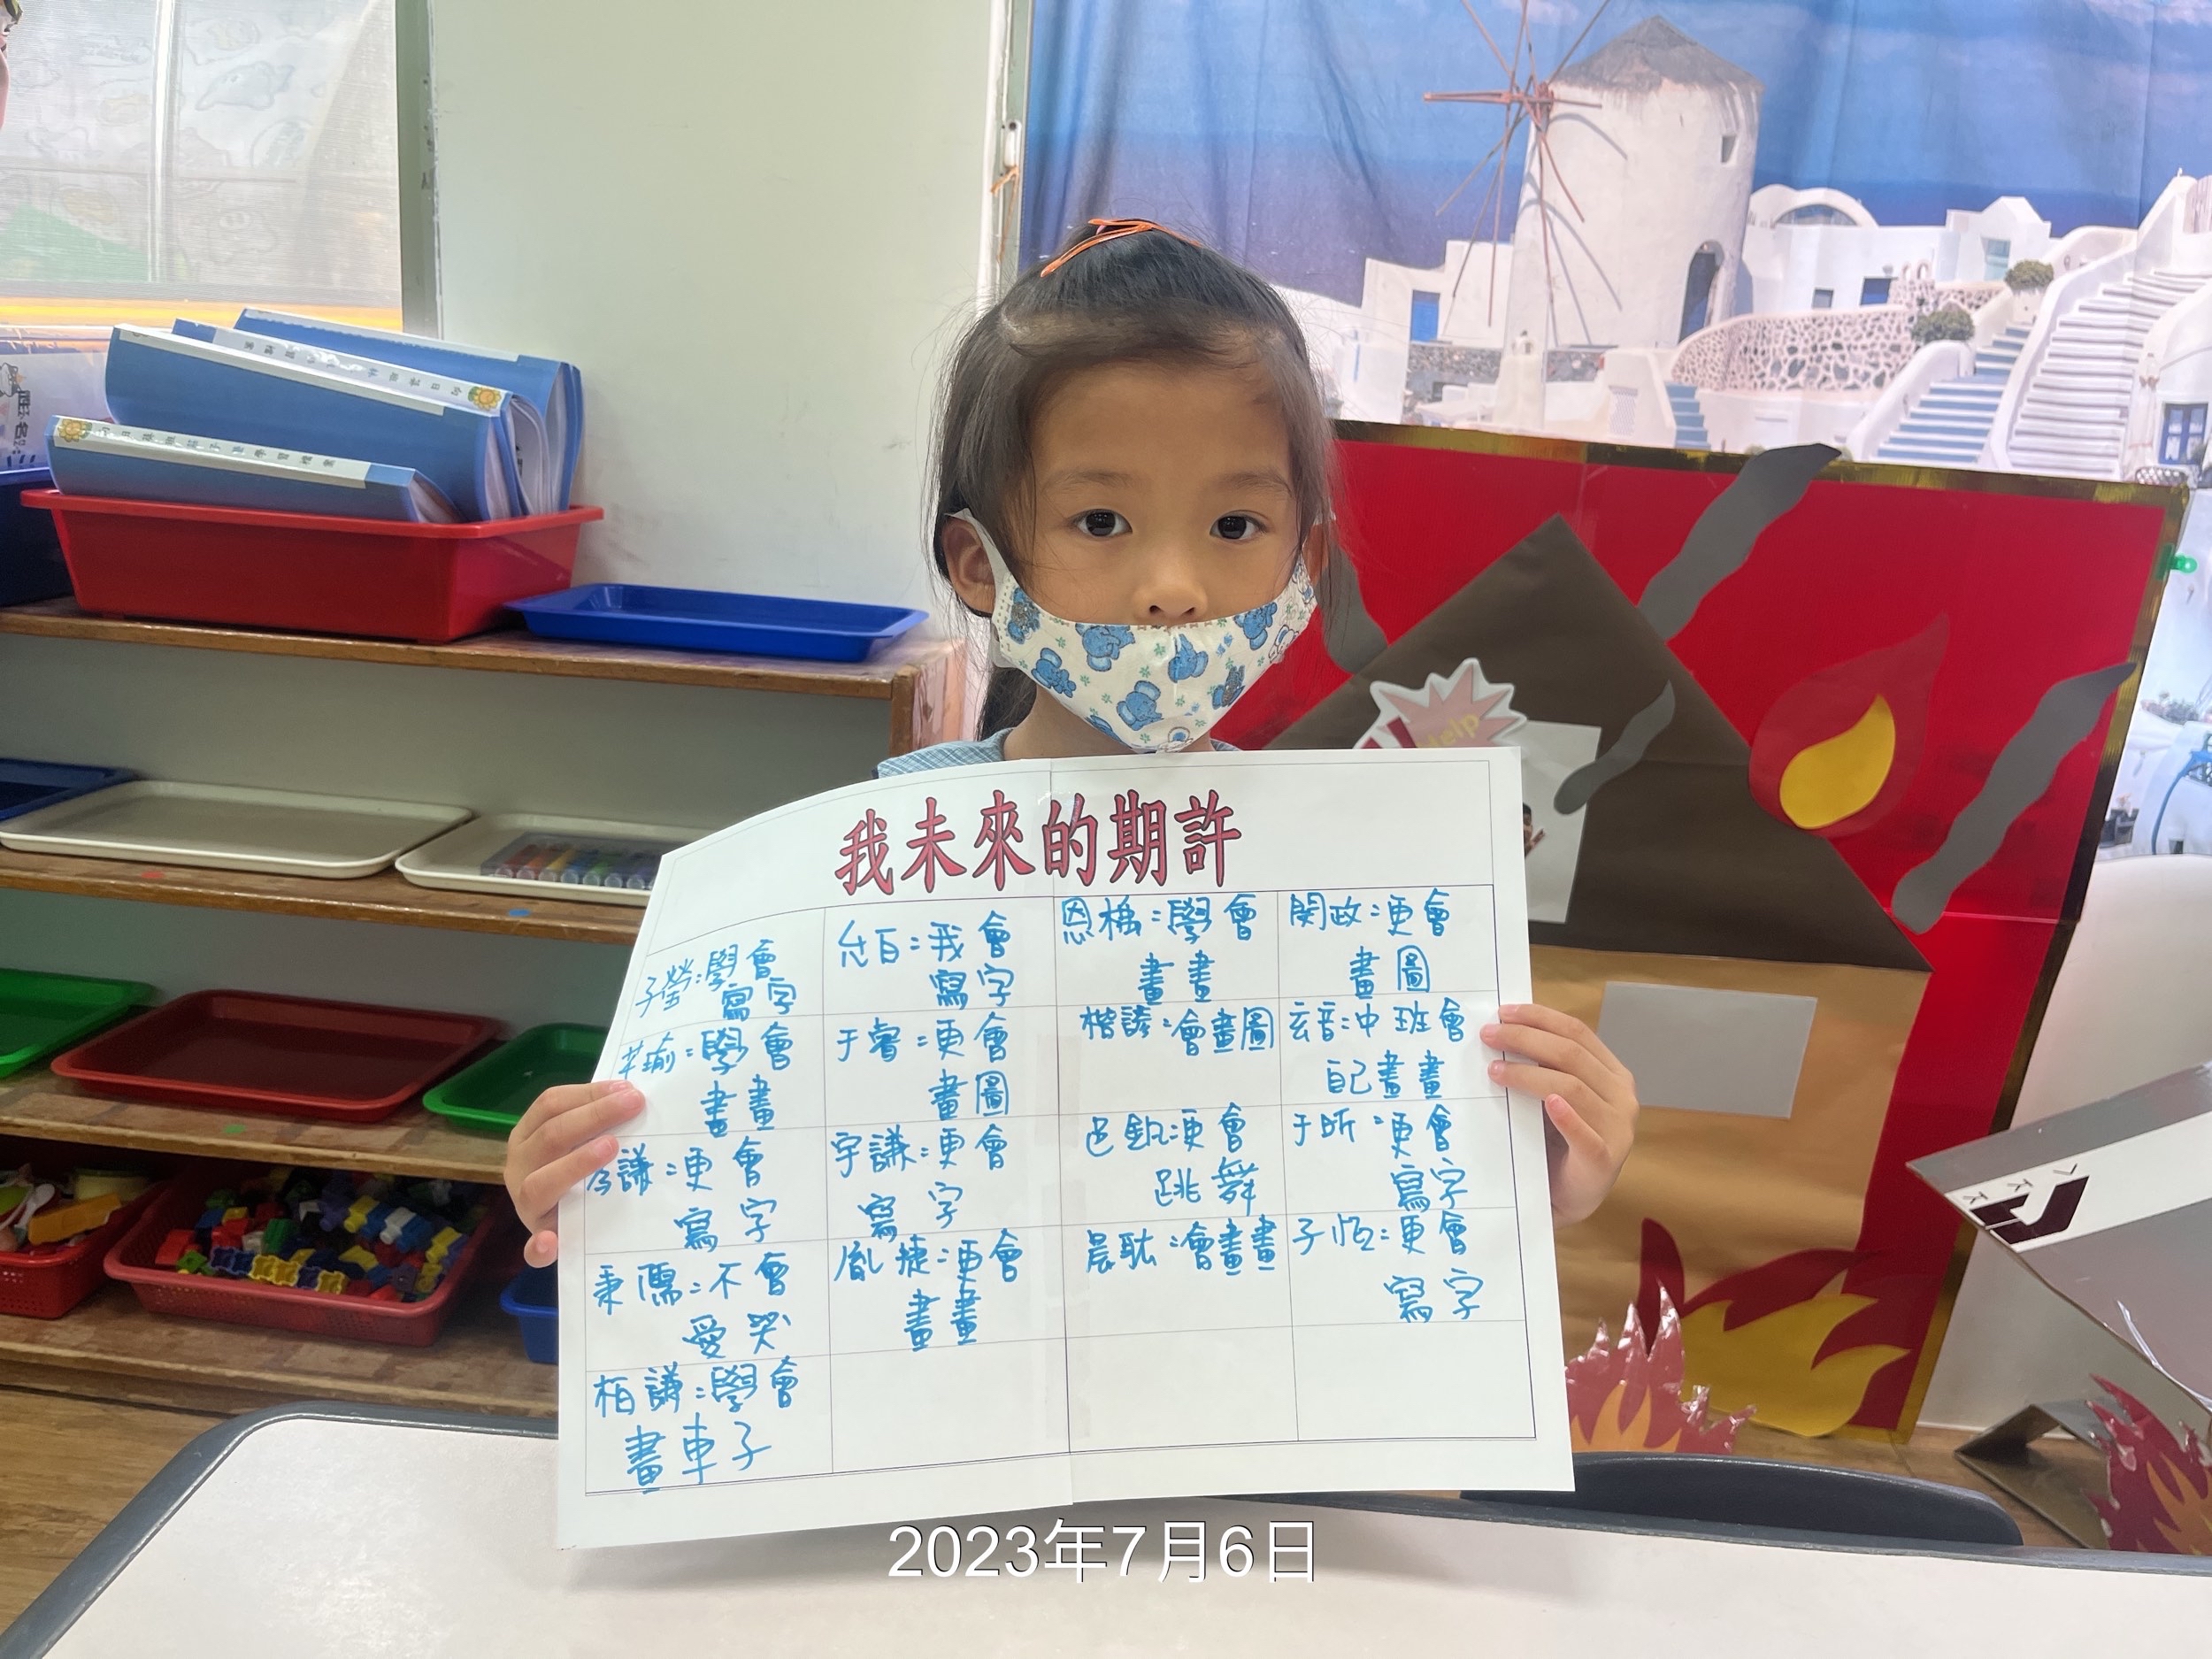 Help
我未來的期許
子瑩:學會
寫字
允百:我會
寫字
恩橋:學會
畫畫
閔政:更會
畫圖
苹瑜:學會
畫畫
于睿:更會
畫圖
楷諺:會畫圖
玄音:中班會
自己畫畫
謙:更會
寫字
宇謙:更會
寫字
更會
跳舞
于昕:更會
寫字
秉儒:不會
愛哭
胤捷:更會
畫畫
晨耿:會畫畫
子恆:更會
寫字
柏謙:學會
畫車子
2023年7月6日